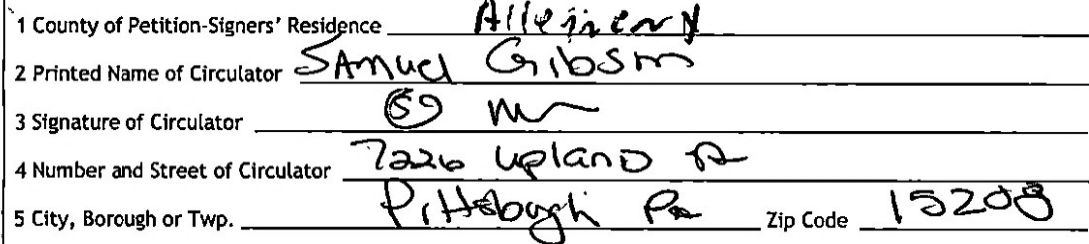 1 County of Petition-Signers' Residence Allegheny
2 Printed Name of Circulator SAmuel Gibson
3 Signature of Circulator
4 Number and Street of Circulator 7226 uplanD
5 City, Borough or Twp. Pittsburgh Pa Zip Code 15208